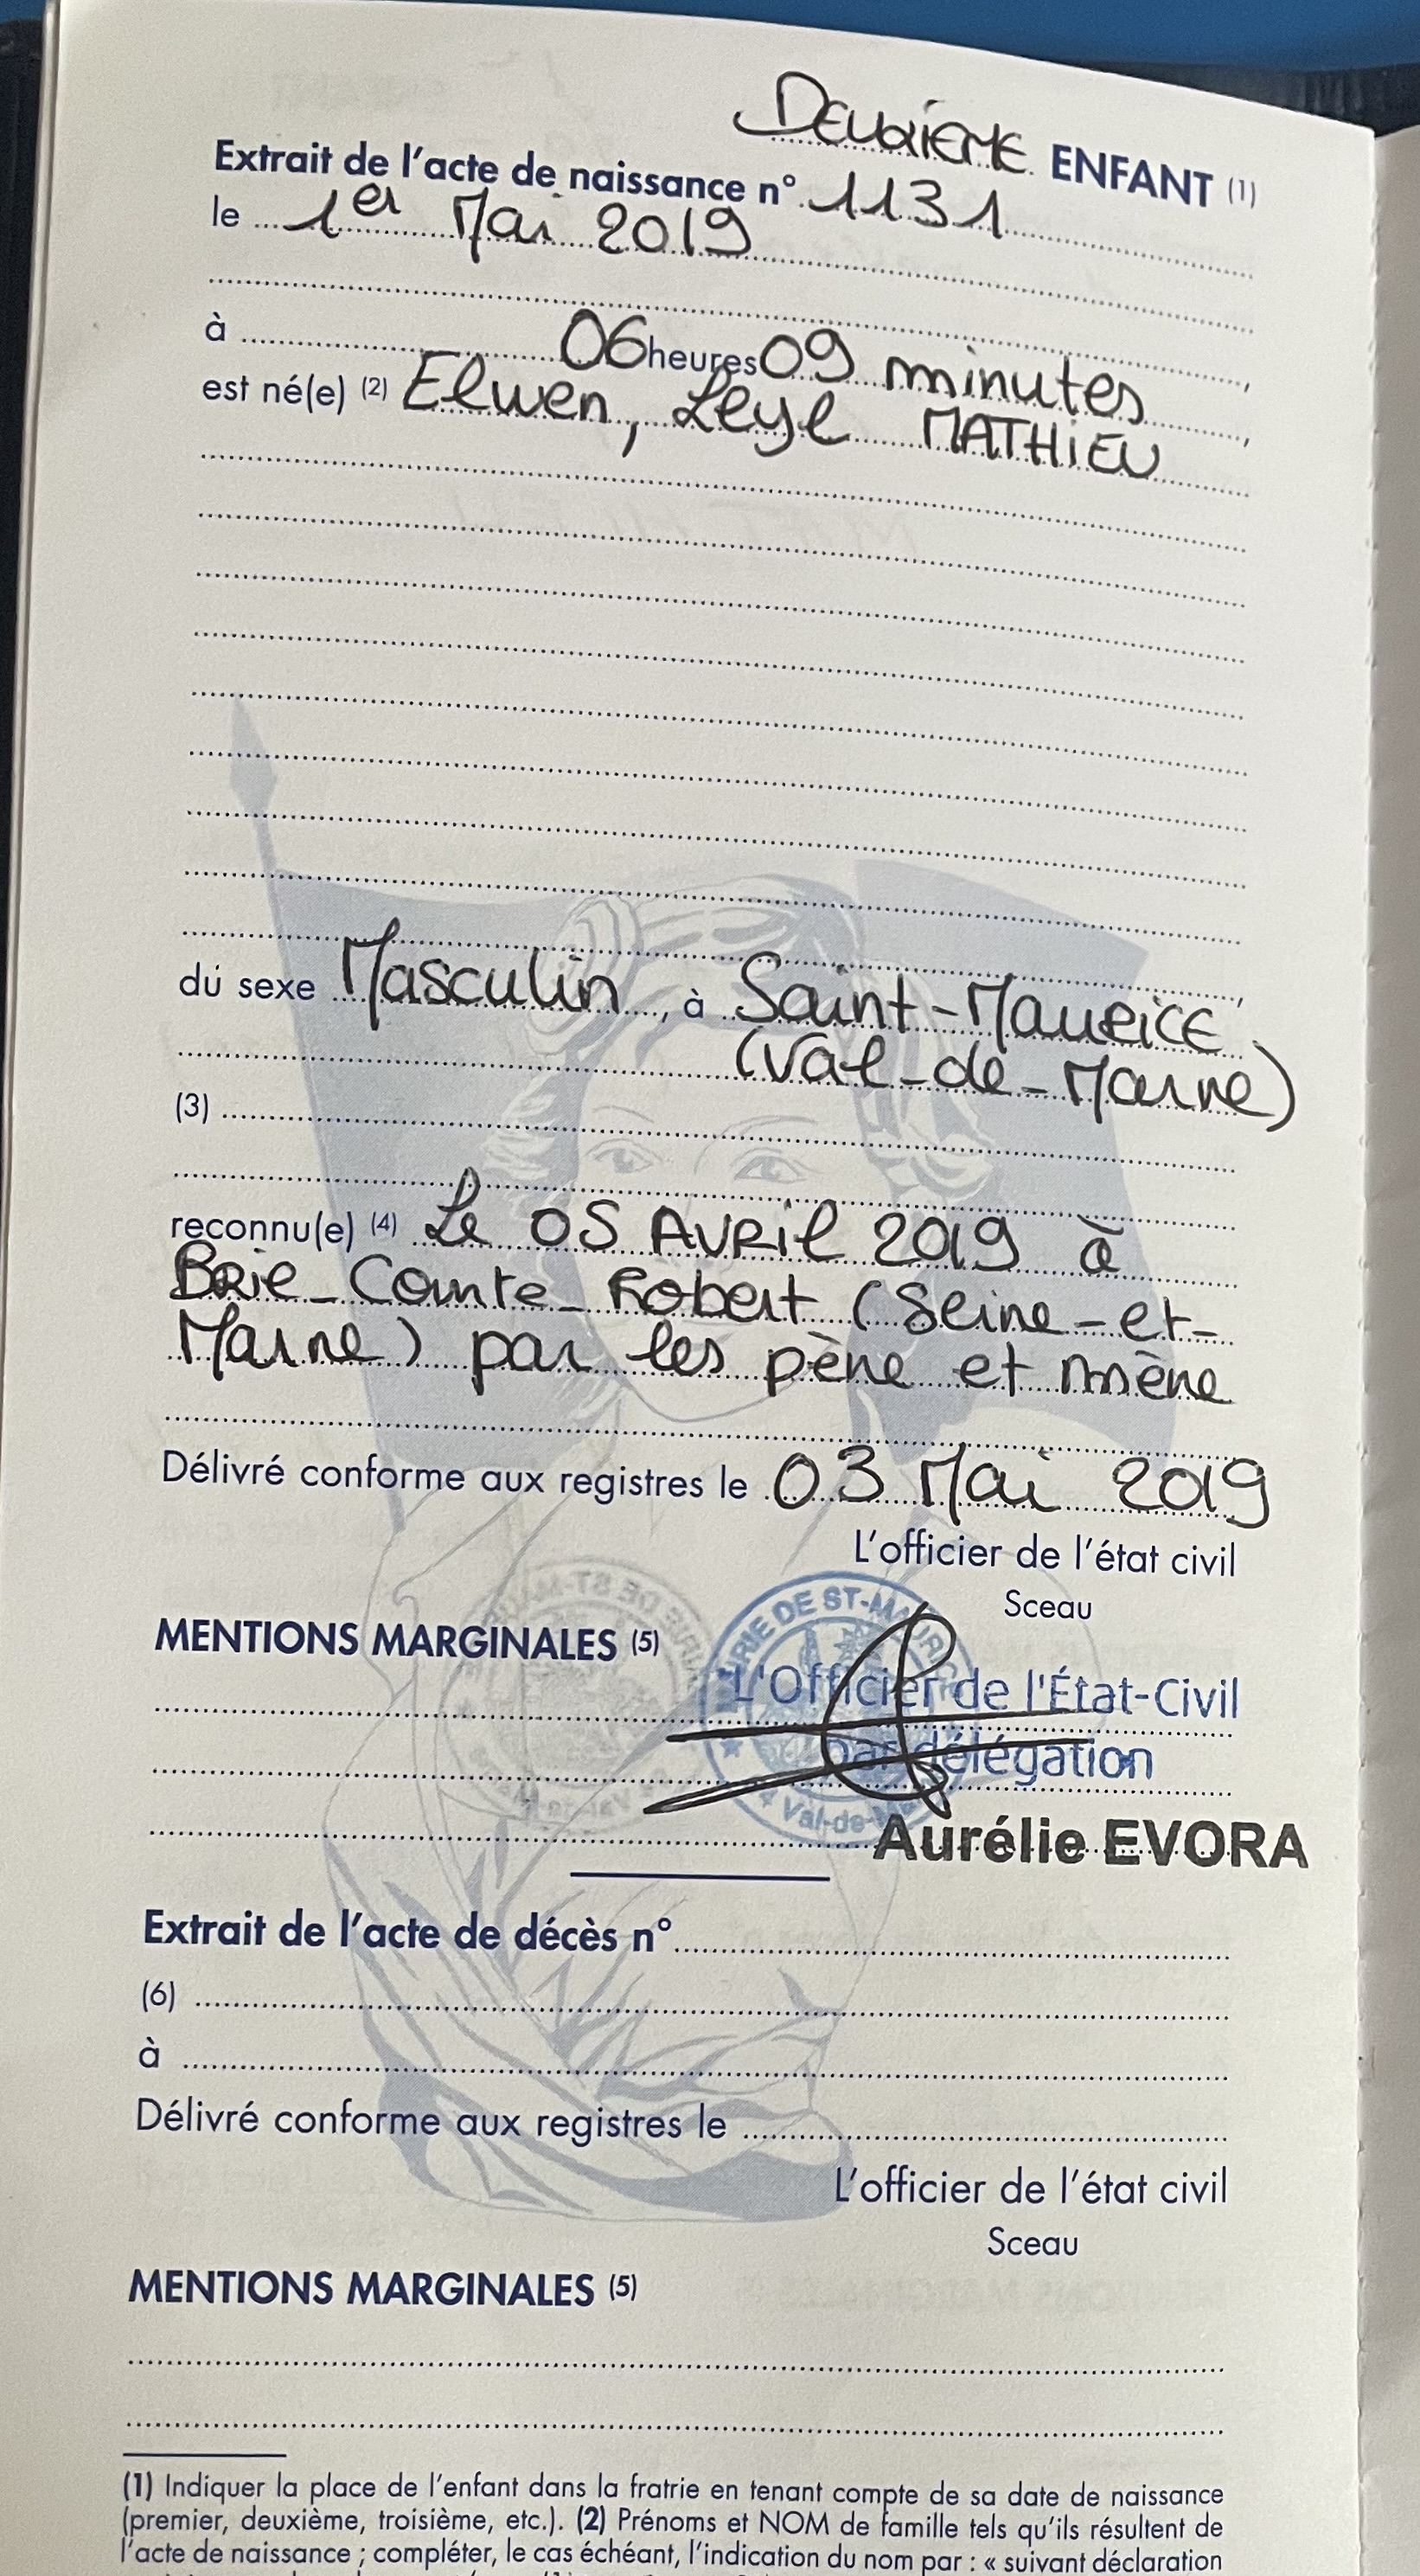 DEUXIÈME ENFANT (1)
Extrait de l'acte de naissance n° 1131
le 1er Mai 2019
à 06 heures 09 minutes,
est né(e) (2) Elwen, Leyl MATHIEU,
du sexe Masculin, à Saint-Maurice,
(Val-de-Marne)
(3)
reconnu(e) (4) Le 05 Avril 2019 à
Brie-Comte-Robert (Seine-et-
Marne) par les père et mère
Délivré conforme aux registres le 03 Mai 2019
L'officier de l'état civil
Sceau
MENTIONS MARGINALES (5)
MAIRIE DE ST-MAURICE
L'Officier de l'État-Civil
par délégation
Val-de-Marne
Aurélie EVORA
Extrait de l'acte de décès n°
(6)
à
Délivré conforme aux registres le
L'officier de l'état civil
Sceau
MENTIONS MARGINALES (5)
(1) Indiquer la place de l'enfant dans la fratrie en tenant compte de sa date de naissance
(premier, deuxième, troisième, etc.). (2) Prénoms et NOM de famille tels qu'ils résultent de
l'acte de naissance ; compléter, le cas échéant, l'indication du nom par : « suivant déclaration